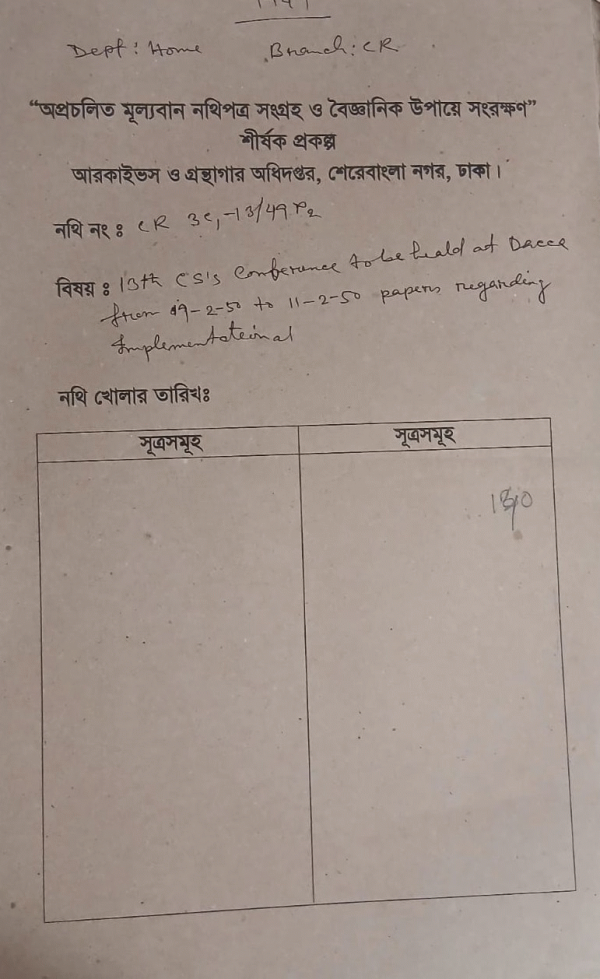 Dept: Home Branch: CR
“অপ্রচলিত মূল্যবান নথিপত্র সংগ্রহ ও বৈজ্ঞানিক উপায়ে সংরক্ষণ”
শীর্ষক প্রকল্প
আরকাইভস ও গ্রন্থাগার অধিদপ্তর, শেরেবাংলা নগর, ঢাকা।
নথি নং ঃ CR 3C,-13/49
বিষয় ঃ 13th CS's Conference to be heald at Dacca
from 9-2-50 to 11-2-50 papers regarding
নথি খোলার তারিখঃ
সূত্রসমূহ সূত্রসমূহ